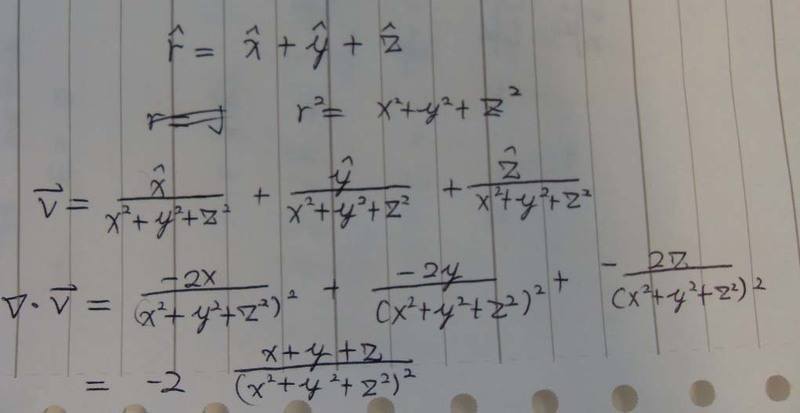 r̂ = x̂ + ŷ + ẑ
r² = x² + y² + z²
v⃗ = x̂/(x²+y²+z²) + ŷ/(x²+y²+z²) + ẑ/(x²+y²+z²)
∇·v⃗ = -2x/(x²+y²+z²)² + -2y/(x²+y²+z²)² + - 2z/(x²+y²+z²)²
= -2 (x+y+z)/(x²+y²+z²)²